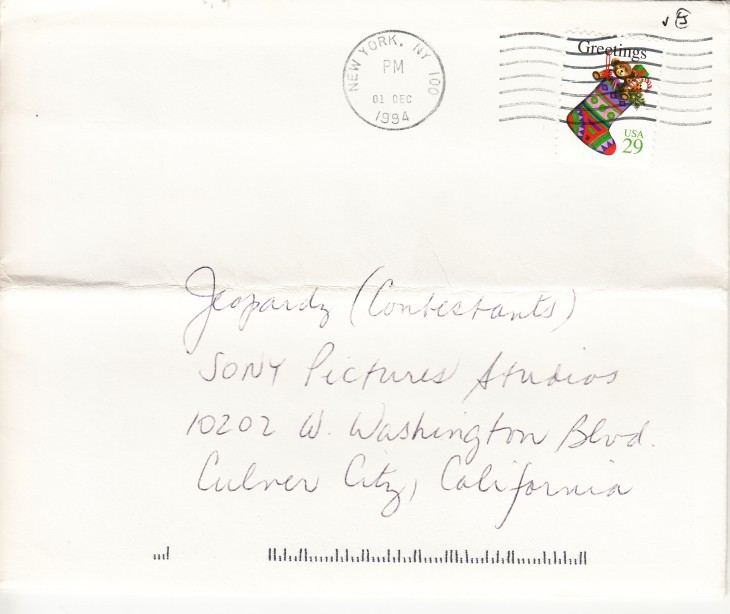 Greetings
USA
29
NEW YORK, NY 100
PM
01 DEC
1994
Jeopardy (Contestants)
SONY Pictures Studios
10202 W. Washington Blvd.
Culver City, California